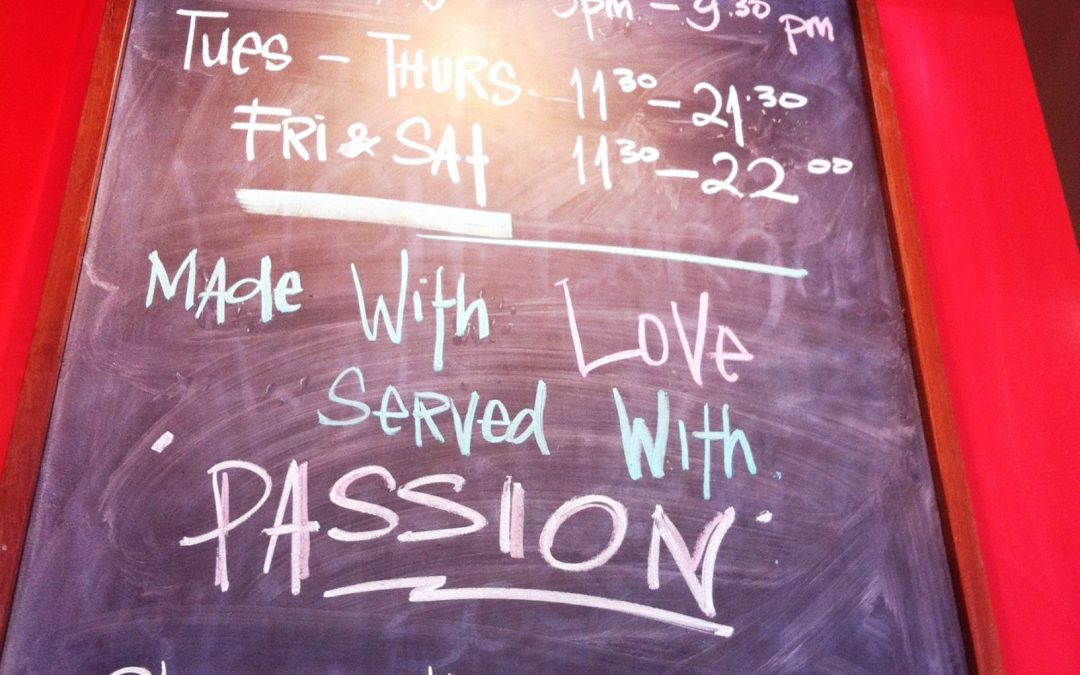 pm - 9.30 pm
TUES - THURS. 11 30 - 21.30
FRI & SAt 11 30 - 22 00
MADe With LOVe
SeRVeD With
PASSION